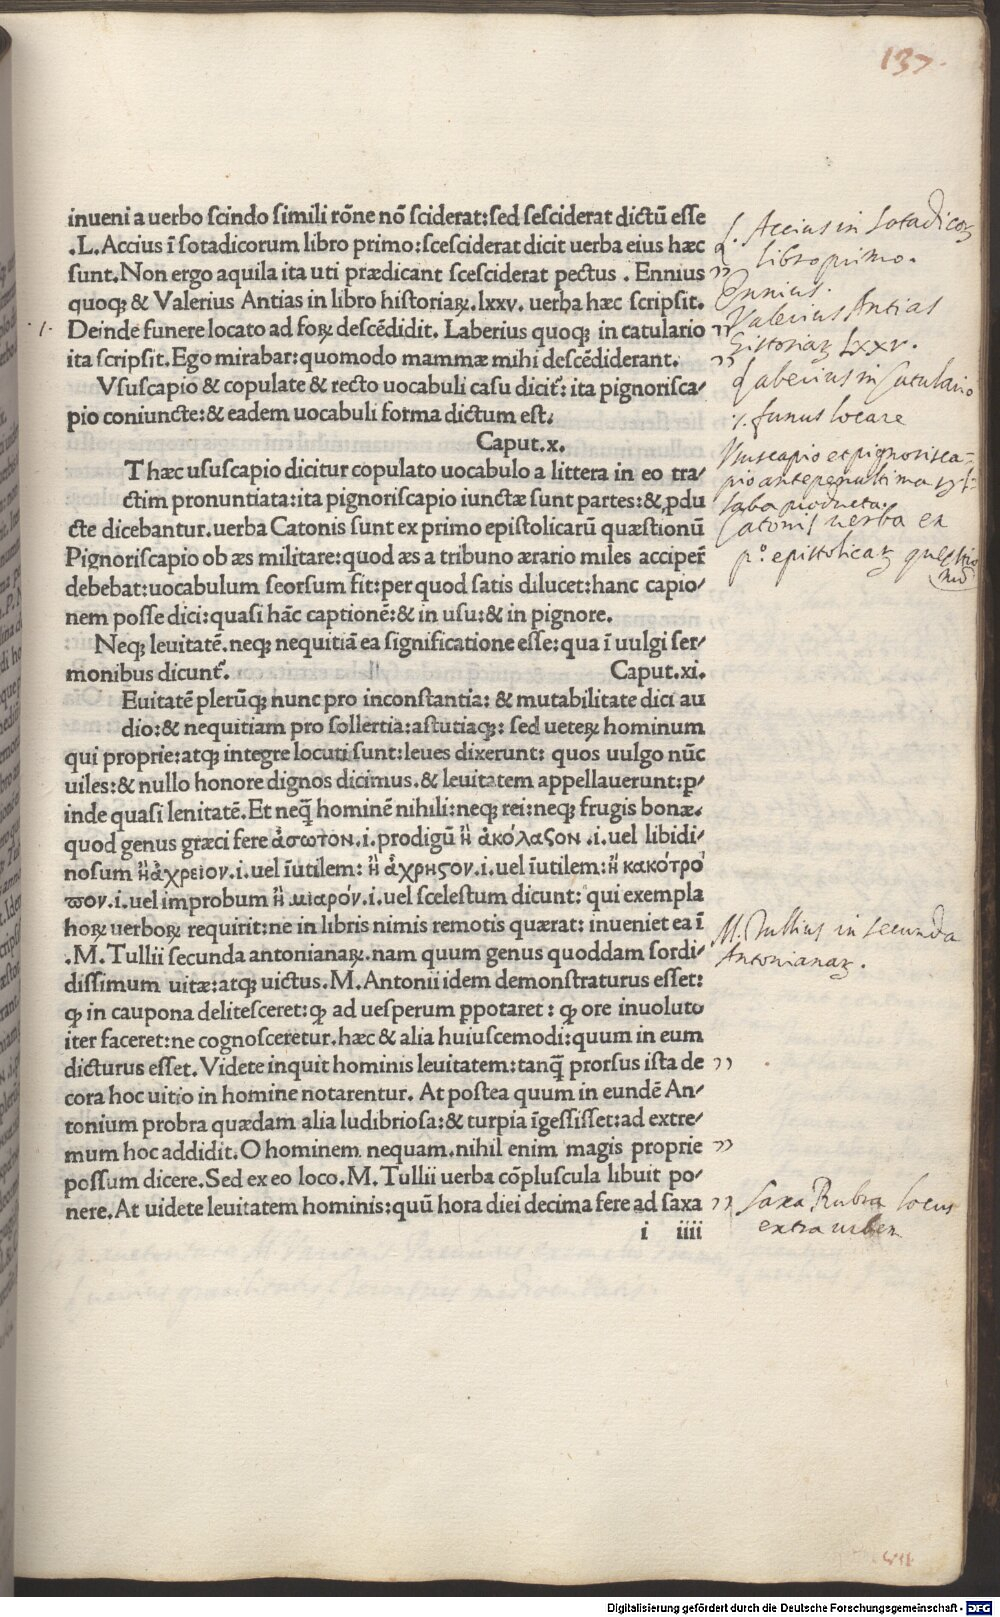 137.
inueni a uerbo scindo simili rōne nō sciderat: sed sesciderat dictū esse
.L. Accius ī sotadicorum libro primo: scesciderat dicit uerba eius hæc
sunt. Non ergo aquila ita uti prædicant scesciderat pectus . Ennius
quoqꝫ & Valerius Antias in libro historiaꝝ .lxxv. uerba hæc scripsit.
Deinde funere locato ad foꝝ descēdidit. Laberius quoqꝫ in catulario
ita scripsit. Ego mirabar: quomodo mammæ mihi descēdiderant.
Vsuscapio & copulate & recto uocabuli casu dicit᷑: ita pignorisca/
pio coniuncte: & eadem uocabuli forma dictum est.
Caput.x.
T hæc ususcapio dicitur copulato uocabulo a littera in eo tra/
ctim pronuntiata: ita pignoriscapio iunctæ sunt partes: & ꝓdu
cte dicebantur. uerba Catonis sunt ex primo epistolicarū quæstionū
Pignoriscapio ob æs militare: quod æs a tribuno ærario miles acciper̄
debebat: uocabulum seorsum fit: per quod satis dilucet: hanc capio/
nem posse dici: quasi hāc captionē: & in usu: & in pignore.
Neqꝫ leuitatē. neqꝫ nequitiā ea significatione esse: qua ī uulgi ser/
monibus dicunt᷑. Caput.xi.
Euitatē plerūqꝫ nunc pro inconstantia: & mutabilitate dici au
dio: & nequitiam pro sollertia: astutiaqꝫ: sed ueteꝝ hominum
qui proprie: atqꝫ integre locuti sunt: leues dixerunt: quos uulgo nūc
uiles: & nullo honore dignos dicimus. & leuitatem appellauerunt: ꝓ/
inde quasi lenitatē. Et neq̄ hominē nihili: neqꝫ rei: neqꝫ frugis bonæ.
quod genus græci fere ἀσωτον .i. prodigū ἢ ἀκόλαϛον .i. uel libidi/
nosum ἢ ἀχρειον .i. uel īutilem: ἢ ἀχρηϛον .i. uel īutilem: ἢ κακότρο
ϖον .i. uel improbum ἢ μιαρόν .i. uel scelestum dicunt: qui exempla
hoꝝ uerboꝝ requirit: ne in libris nimis remotis quærat: inueniet ea ī
.M. Tullii secunda antonianaꝝ. nam quum genus quoddam sordi/
dissimum uitæ: atqꝫ uictus. M. Antonii idem demonstraturus esset:
ꝙ in caupona delitesceret: ꝙ ad uesperum ꝑpotaret: ꝙ ore inuoluto
iter faceret: ne cognosceretur. hæc & alia huiuscemodi: quum in eum
dicturus esset. Videte inquit hominis leuitatem: tanq̄ prorsus ista de
cora hoc uitio in homine notarentur. At postea quum in eundē An/
tonium probra quædam alia ludibriosa: & turpia īgessisset: ad extre/
mum hoc addidit. O hominem nequam. nihil enim magis proprie
possum dicere. Sed ex eo loco. M. Tullii uerba cōpluscula libuit po/
nere. At uidete leuitatem hominis: quū hora diei decima fere ad saxa
i iiii
L. Accius in Sotadicoꝝ
libro primo.
Ennius.
Valerius Antias
Historiaꝝ lxxv.
Laberius in Catulario
·/. funus locare
Vsuscapio et pignorisca=
pio antepenultima
laba producta.
Catonis uerba ex
p.º epistolicaꝝ questio
nū
M. Tullius in secunda
Antonianaꝝ.
Saxa Rubra locus
extra urbem
Digitalisierung gefördert durch die Deutsche Forschungsgemeinschaft - DFG